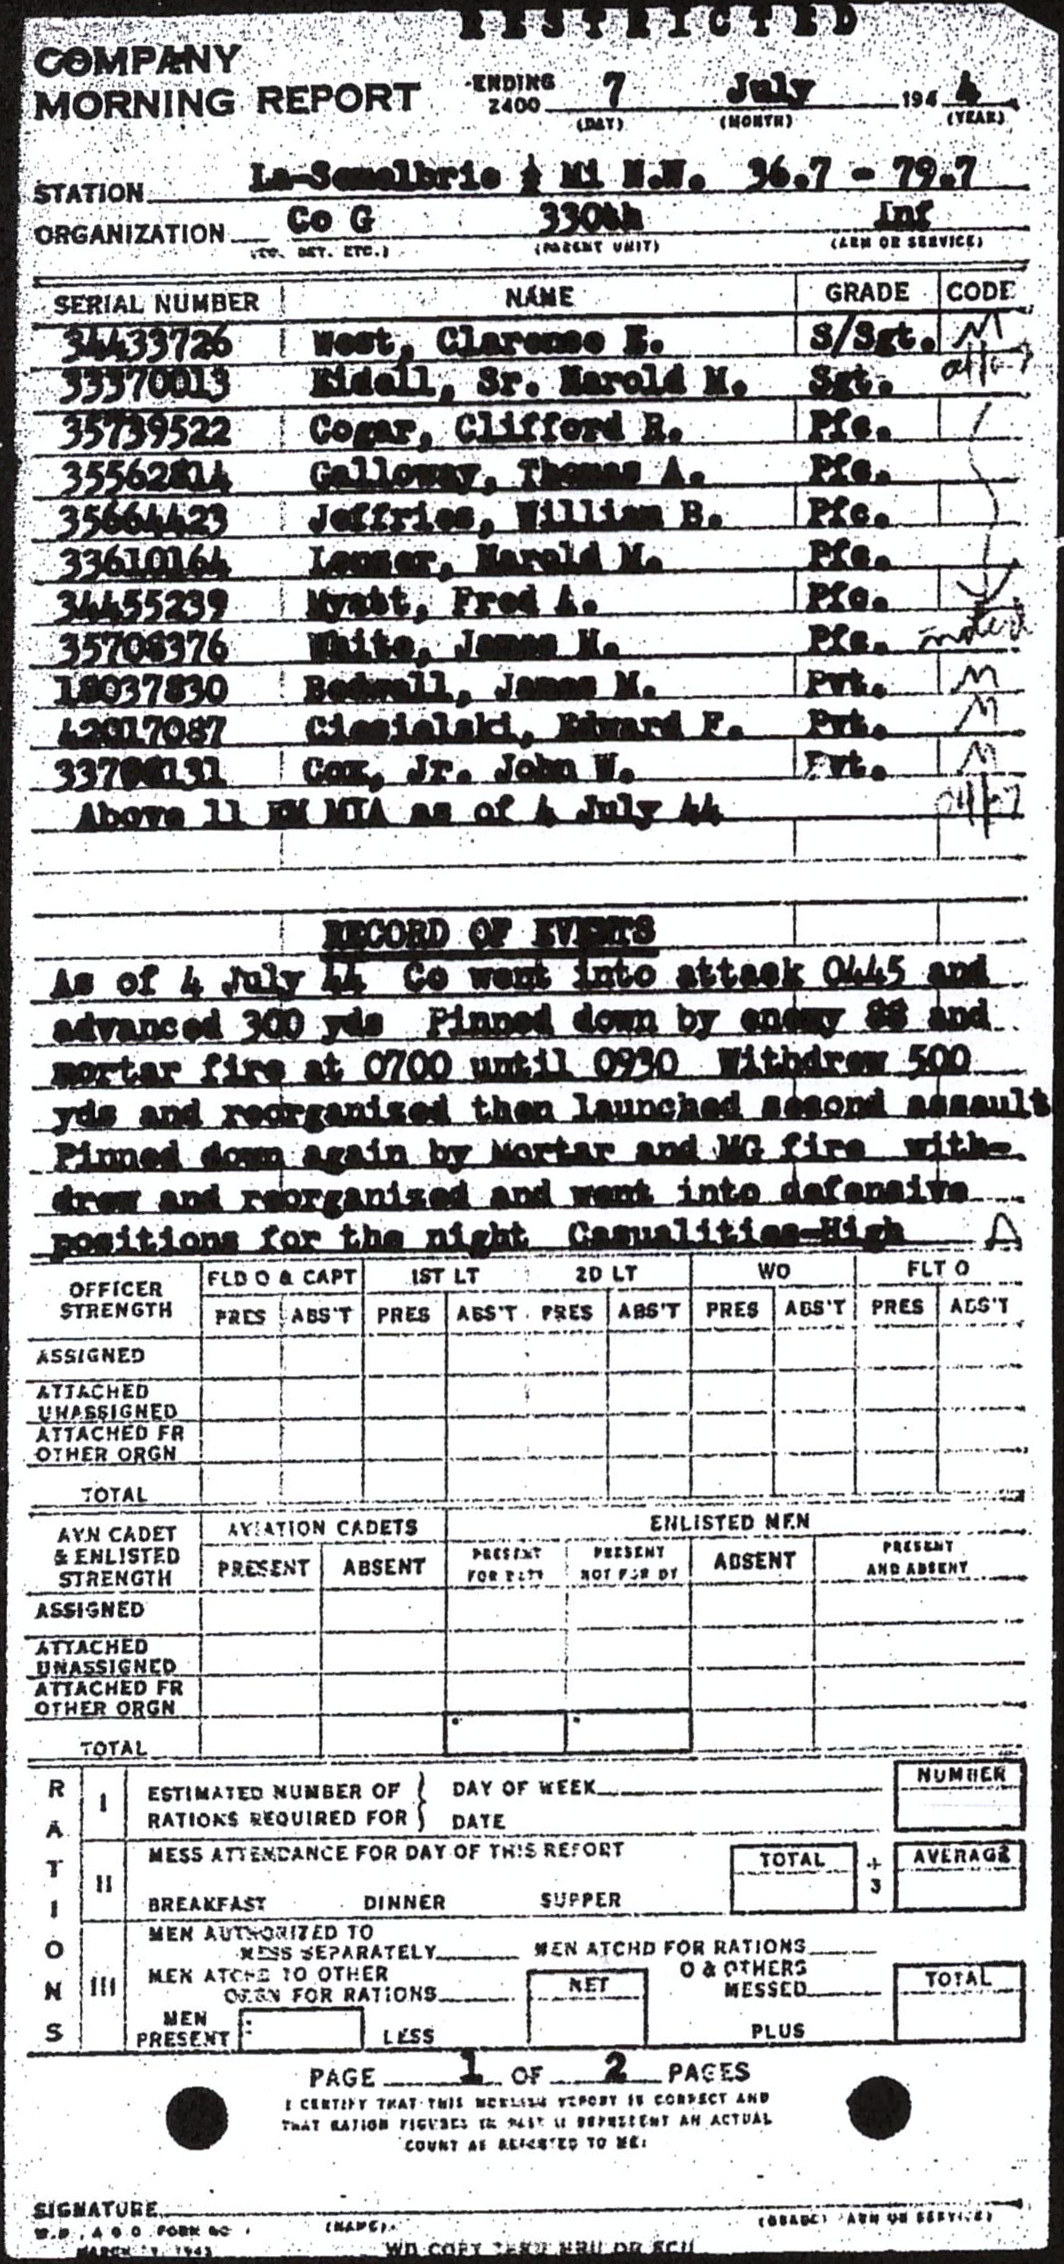 RESTRICTED
COMPANY
MORNING REPORT
ENDING 2400 7 July 194 4
(DAY) (MONTH) (YEAR)
STATION La-Semelbrie ½ Mi N.W. 36.7 - 79.7
ORGANIZATION Co G 330th Inf
(CO. DET. ETC.) (PARENT UNIT) (ARM OR SERVICE)
SERIAL NUMBER NAME GRADE CODE
34433726 West, Clarence E. S/Sgt. M
33370013 Sr. Harold M. Sgt.
35739522 Cogar, Clifford R. Pfc.
35562814 Galloway, Thomas A. Pfc.
35664423 Jeffries, William B. Pfc.
33610164 Harold M. Pfc.
34455239 Myatt, Fred A. Pfc.
35708376 White, James H. Pfc. noted
18037830 Bedwell, James M. Pvt. M
42017087 Ciesielski, Edward F. Pvt. M
Cox, Jr. John W. Pvt. M
Above 11 EM MIA as of 4 July 44
RECORD OF EVENTS
As of 4 July 44 Co went into attack 0445 and
advanced 300 yds Pinned down by enemy 88 and
mortar fire at 0700 until 0930 Withdrew 500
yds and reorganized then launched second assault
Pinned down again by Mortar and MG fire with-
drew and reorganized and went into defensive
positions for the night Casualities-High A
OFFICER STRENGTH FLD O & CAPT 1ST LT 2D LT WO FLT O
PRES ABS'T PRES ABS'T PRES ABS'T PRES ABS'T PRES ABS'T
ASSIGNED
ATTACHED UNASSIGNED
ATTACHED FR OTHER ORGN
TOTAL
AVN CADET & ENLISTED STRENGTH AVIATION CADETS ENLISTED MEN
PRESENT ABSENT PRESENT FOR DUTY PRESENT NOT FOR DY ABSENT PRESENT AND ABSENT
ASSIGNED
ATTACHED UNASSIGNED
ATTACHED FR OTHER ORGN
TOTAL
RATIONS
I ESTIMATED NUMBER OF RATIONS REQUIRED FOR DAY OF WEEK DATE NUMBER
II MESS ATTENDANCE FOR DAY OF THIS REPORT TOTAL ÷ 3 AVERAGE
BREAKFAST DINNER SUPPER
III MEN AUTHORIZED TO MESS SEPARATELY MEN ATCHD FOR RATIONS
MEN ATCHD TO OTHER ORGN FOR RATIONS NET O & OTHERS MESSED TOTAL
MEN PRESENT LESS PLUS
PAGE 1 OF 2 PAGES
I CERTIFY THAT THIS MORNING REPORT IS CORRECT AND
THAT RATION FIGURES IN PART II REPRESENT AN ACTUAL
COUNT AS REPORTED TO ME:
SIGNATURE
(NAME) (GRADE) (ARM OR SERVICE)
W.D., A.G.O. FORM NO. 1
MARCH 19, 1943
WD COPY THRU MRU OR